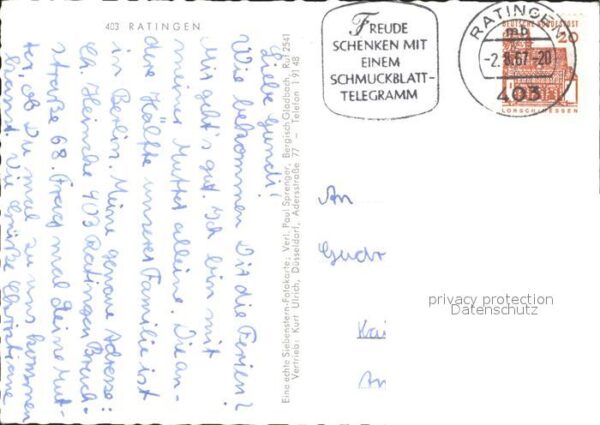 403 RATINGEN
Liebe Gundi!
Wie bekommen Dir die Ferien?
Mir geht's gut. Ich bin mit
meiner Mutter alleine. Die an-
dere Hälfte unserer Familie ist
in Berlin. Meine genaue Adresse:
403 Ratingen
straße 68. Frag mal deine Mut-
ter, ob Du mal zu uns kommen
kannst. Viele Grüße Christiane
Eine echte Siebenstern-Fotokarte; Verl. Paul Sprenger, Bergisch Gladbach, Ruf 2541
Vertrieb: Kurt Ulrich, Düsseldorf, Adersstraße 77 – Telefon 1 91 48
FREUDE
SCHENKEN MIT
EINEM
SCHMUCKBLATT-
TELEGRAMM
RATINGEN
mb
-2.8.67-20
403
DEUTSCHE BUNDESPOST
20
LORSCH/HESSEN
An
Gudr
Kai
An
privacy protection
Datenschutz